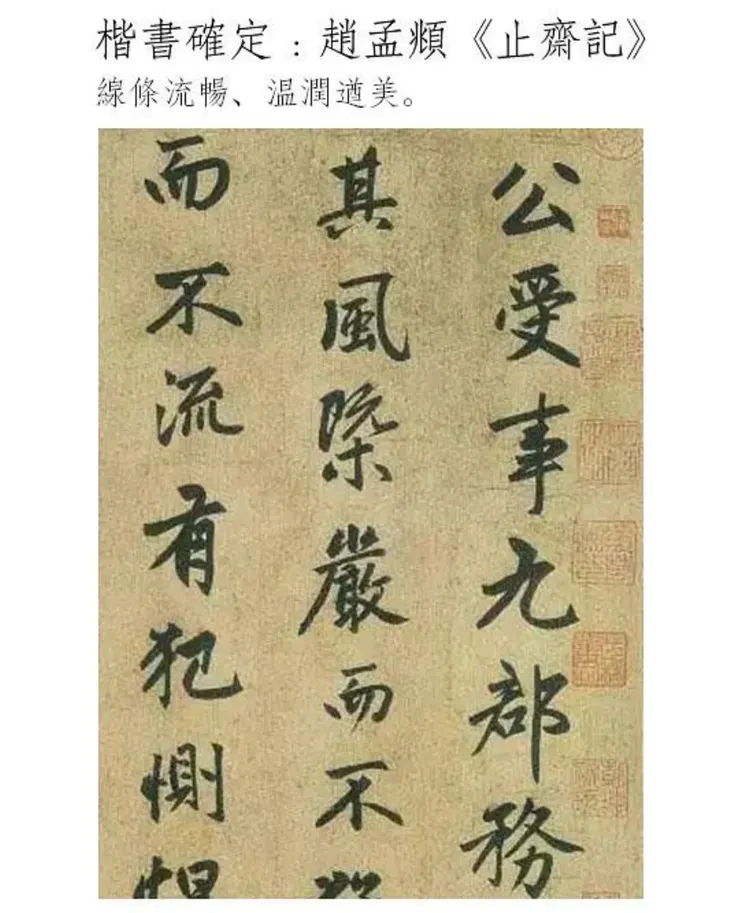 楷書確定：趙孟頫《止齋記》
線條流暢、温潤遒美。
公受事九部務
其風槩嚴而不
而不流有犯惻